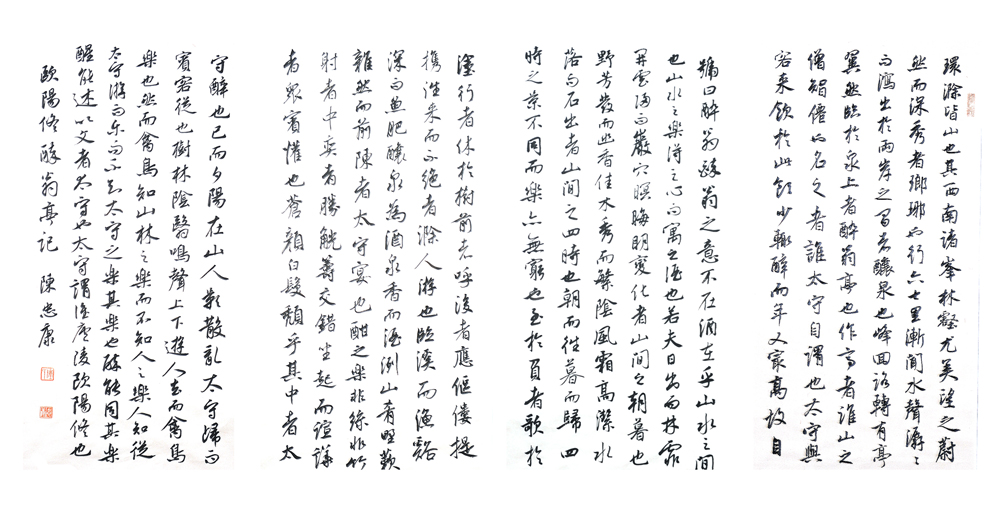 環滁皆山也其西南諸峯林壑尤美望之蔚
然而深秀者瑯琊也行六七里漸聞水聲潺々
而瀉出於兩峯之間者釀泉也峰回路轉有亭
翼然臨於泉上者醉翁亭也作亭者誰山之
僧智僊也名之者誰太守自謂也太守與
客來飲於此飲少輒醉而年又最高故自
號曰醉翁醉翁之意不在酒在乎山水之間
也山水之樂得之心而寓之酒也若夫日出而林霏
開雲歸而巖穴暝晦明變化者山間之朝暮也
野芳發而幽香佳木秀而繁陰風霜高潔水
落而石出者山間之四時也朝而往暮而歸四
時之景不同而樂亦無窮也至於負者歌於
塗行者休於樹前者呼後者應傴僂提
攜往來而不絕者滁人游也臨溪而漁谿
深而魚肥釀泉為酒泉香而酒洌山肴野蔌
雜然而前陳者太守宴也酣之樂非絲非竹
射者中奕者勝觥籌交錯坐起而諠譁
者眾賓懽也蒼顏白髮頹乎其中者太
守醉也已而夕陽在山人影散亂太守歸而
賓客從也樹林陰翳鳴聲上下遊人去而禽鳥
樂也然而禽鳥知山林之樂而不知人之樂人知從
太守游而樂而不知太守之樂其樂也醉能同其樂
醒能述以文者太守也太守謂誰廬陵歐陽修也
歐陽修醉翁亭記 陳忠康